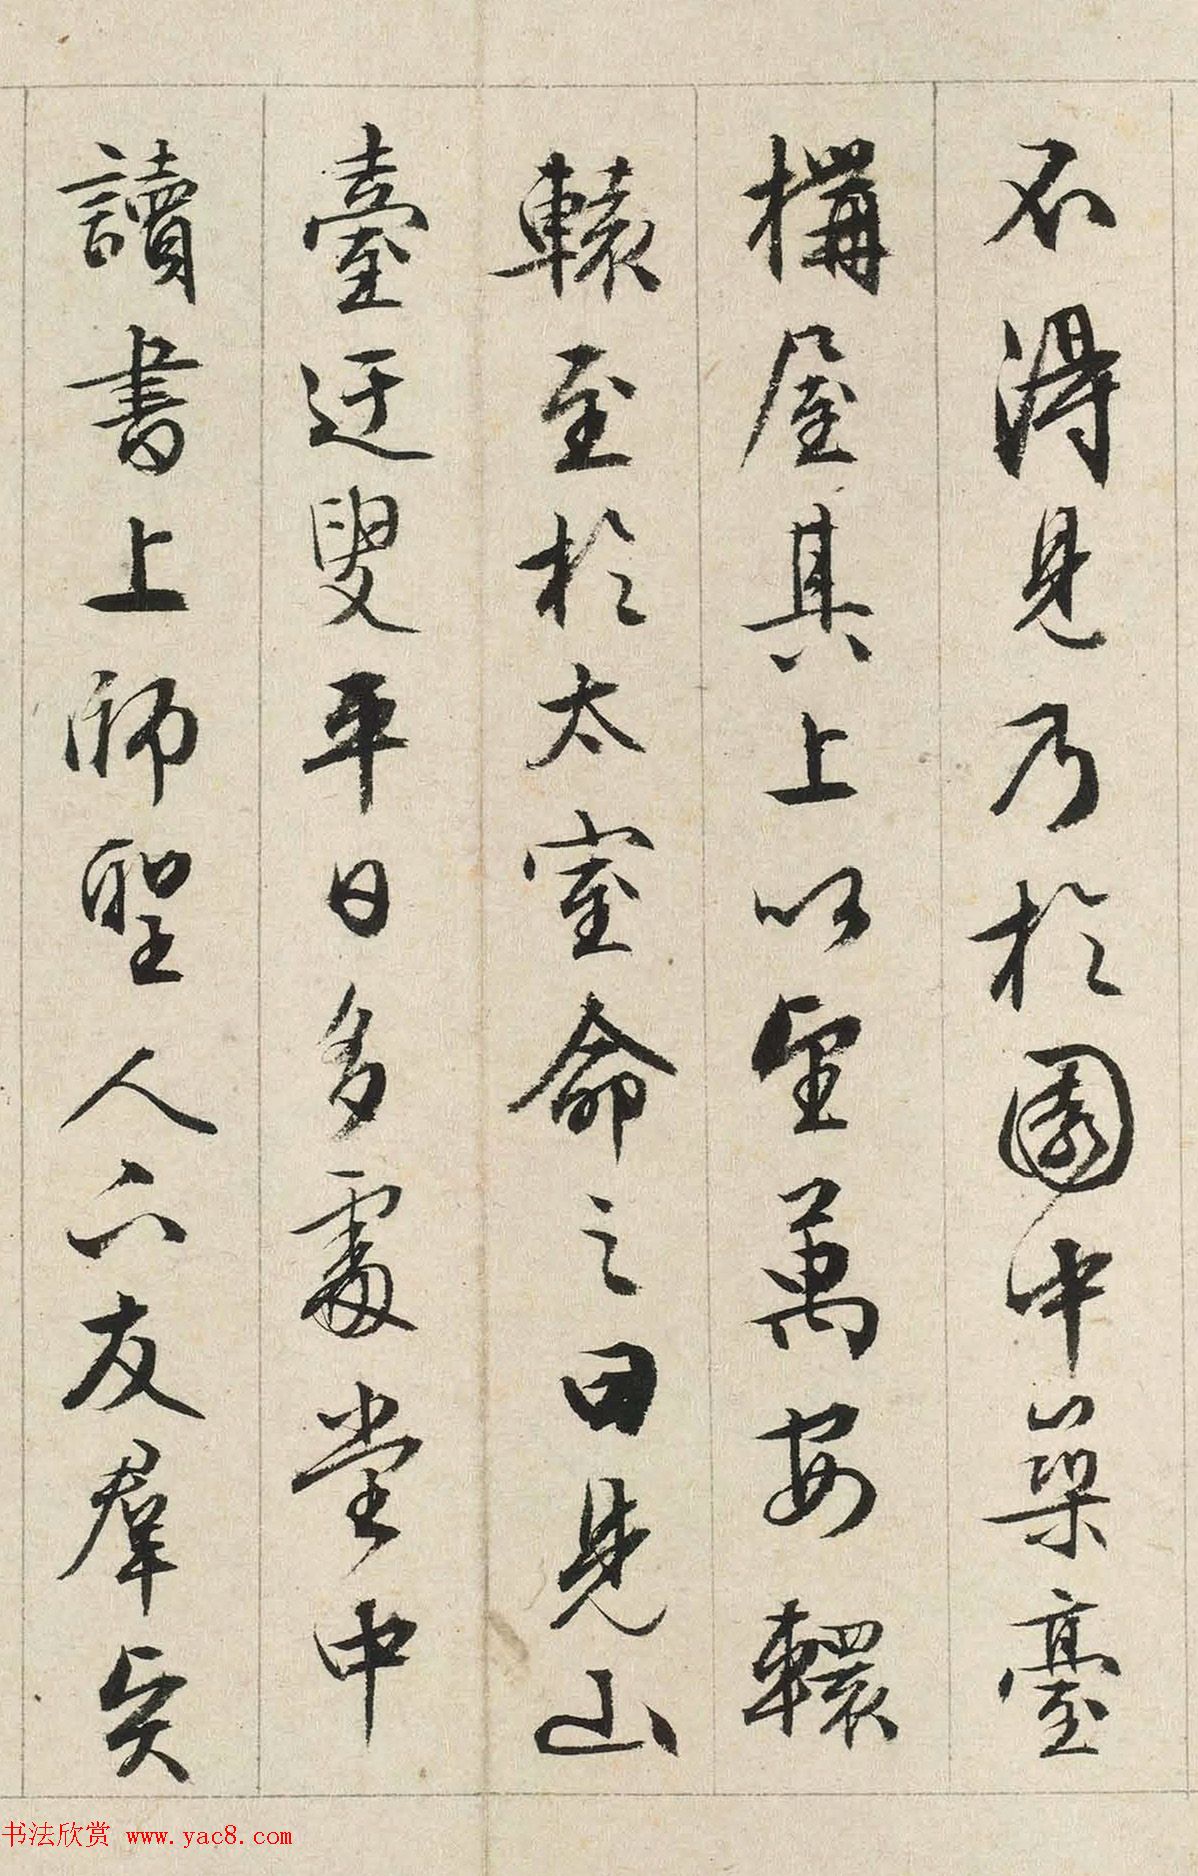 不得見乃於園中築臺
構屋其上以望萬安轘
轅至於太室命之曰見山
臺迂叟平日多處堂中
讀書上師聖人下友群賢
书法欣赏 www.yac8.com